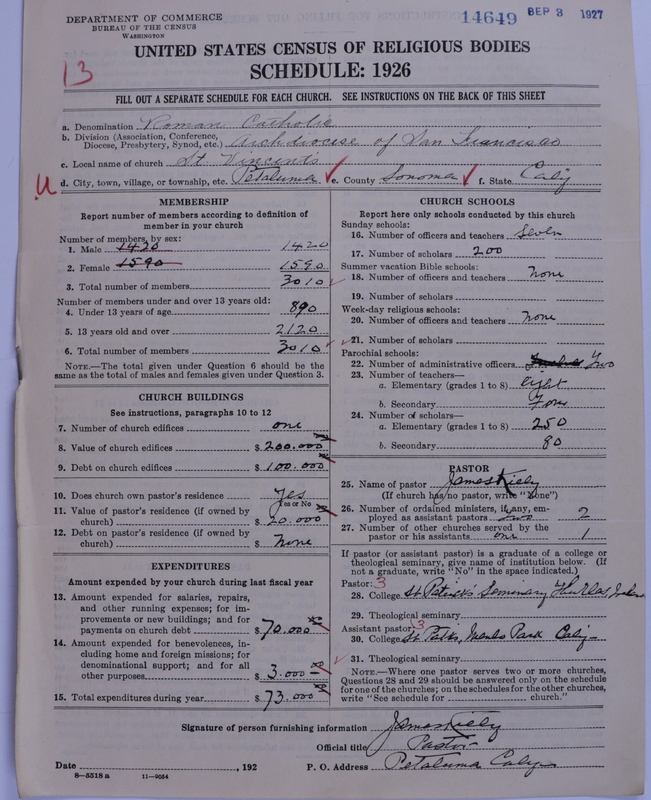 DEPARTMENT OF COMMERCE
BUREAU OF THE CENSUS
WASHINGTON
14649 SEP 3 1927
UNITED STATES CENSUS OF RELIGIOUS BODIES
SCHEDULE: 1926
13
FILL OUT A SEPARATE SCHEDULE FOR EACH CHURCH. SEE INSTRUCTIONS ON THE BACK OF THIS SHEET
a. Denomination Roman Catholic
b. Division (Association, Conference, Diocese, Presbytery, Synod, etc.) Archdiocese of San Francisco
c. Local name of church St Vincents
U
d. City, town, village, or township, etc. Petaluma e. County Sonoma f. State Caly
MEMBERSHIP
Report number of members according to definition of
member in your church
Number of members, by sex:
1. Male 1420 1420
2. Female 1590 1590
3. Total number of members 3010
Number of members under and over 13 years old:
4. Under 13 years of age 890
5. 13 years old and over 2120
6. Total number of members 3010
NOTE.—The total given under Question 6 should be
same as the total of males and females given under Question 3.
CHURCH BUILDINGS
See instructions, paragraphs 10 to 12
7. Number of church edifices one
8. Value of church edifices $ 200.000
9. Debt on church edifices $ 100.000
10. Does church own pastor's residence Yes
Yes or No
11. Value of pastor's residence (if owned by
church) $ 20.000
12. Debt on pastor's residence (if owned by
church) $ None
EXPENDITURES
Amount expended by your church during last fiscal year
13. Amount expended for salaries, repairs,
and other running expenses; for im-
provements or new buildings; and for
payments on church debt $ 70.000
14. Amount expended for benevolences, in-
cluding home and foreign missions; for
denominational support; and for all
other purposes $ 3.000
15. Total expenditures during year $ 73.000
CHURCH SCHOOLS
Report here only schools conducted by this church
Sunday schools:
16. Number of officers and teachers Seven
17. Number of scholars 200
Summer vacation Bible schools:
18. Number of officers and teachers None
19. Number of scholars
Week-day religious schools:
20. Number of officers and teachers None
21. Number of scholars
Parochial schools:
22. Number of administrative officers Two
23. Number of teachers—
a. Elementary (grades 1 to 8) eight
b. Secondary Four
24. Number of scholars—
a. Elementary (grades 1 to 8) 250
b. Secondary 80
PASTOR
25. Name of pastor James Kiely
(If church has no pastor, write "None")
26. Number of ordained ministers, if any, em-
ployed as assistant pastors two 2
27. Number of other churches served by the
pastor or his assistants one 1
If pastor (or assistant pastor) is a graduate of a college or
theological seminary, give name of institution below. (If
not a graduate, write "No" in the space indicated.)
Pastor: 3
28. College St Patricks Seminary Thurles Ireland
29. Theological seminary
Assistant pastor: 3
30. College St Patks, Menlo Park Caly
31. Theological seminary
NOTE.—Where one pastor serves two or more churches,
Questions 28 and 29 should be answered only on the schedule
for one of the churches; on the schedules for the other churches,
write "See schedule for church."
Signature of person furnishing information James Kiely
Official title Pastor
Date , 192 P. O. Address Petaluma Caly
8—5518 a 11—9054